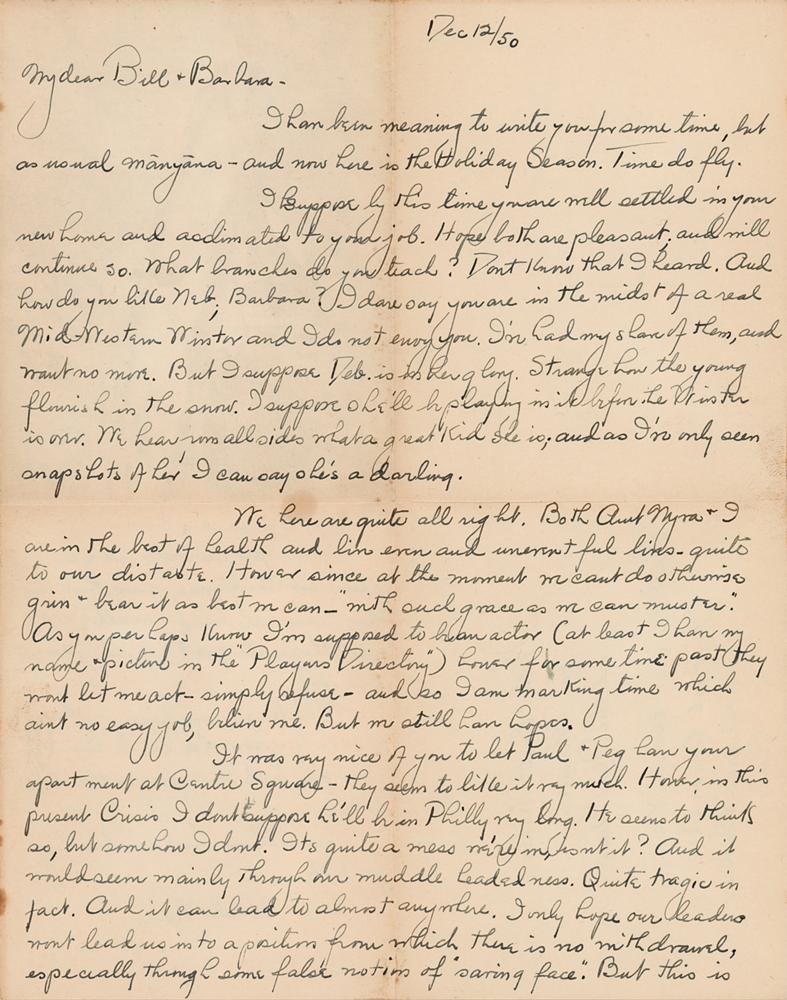 Dec 12/50
My dear Bill + Barbara -
I have been meaning to write you for some time, but
as usual mānyāna - and now here is the Holiday Season. Time do fly.
I suppose by this time you are well settled in your
new home and acclimated to your job. Hope both are pleasant, and will
continue so. What branches do you teach? Dont Know that I heard. And
how do you like Neb; Barbara? I dare say you are in the midst of a real
Mid-Western Winter and I do not envy you. I've had my share of them, and
want no more. But I suppose Deb. is in her glory. Strange how the young
flourish in the snow. I suppose she'll be playing in it before the Winter
is over. We hear from all sides what a great Kid she is; and as I've only seen
snapshots of her I can say she's a darling.
We here are quite all right. Both Aunt Myra + I
are in the best of health and live even and uneventful lives - quite
to our distaste. However since at the moment we cant do otherwise
grin + bear it as best we can - "with such grace as we can muster".
As you perhaps Know I'm supposed to be an actor (at least I have my
name + picture in the "Players Directory") however for some time past they
wont let me act - simply refuse - and so I am marking time which
aint no easy job, believe me. But we still have hopes.
It was very nice of you to let Paul + Peg have your
apartment at Centre Square - they seem to like it very much. However, in this
present Crisis I dont suppose he'll be in Philly very long. He seems to think
so, but somehow I dont. Its quite a mess we're in, isnt it? And it
would seem mainly through our muddle headedness. Quite tragic in
fact. And it can lead to almost anywhere. I only hope our leaders
wont lead us into a position from which there is no withdrawel,
especially through some false notion of "saving face". But this is